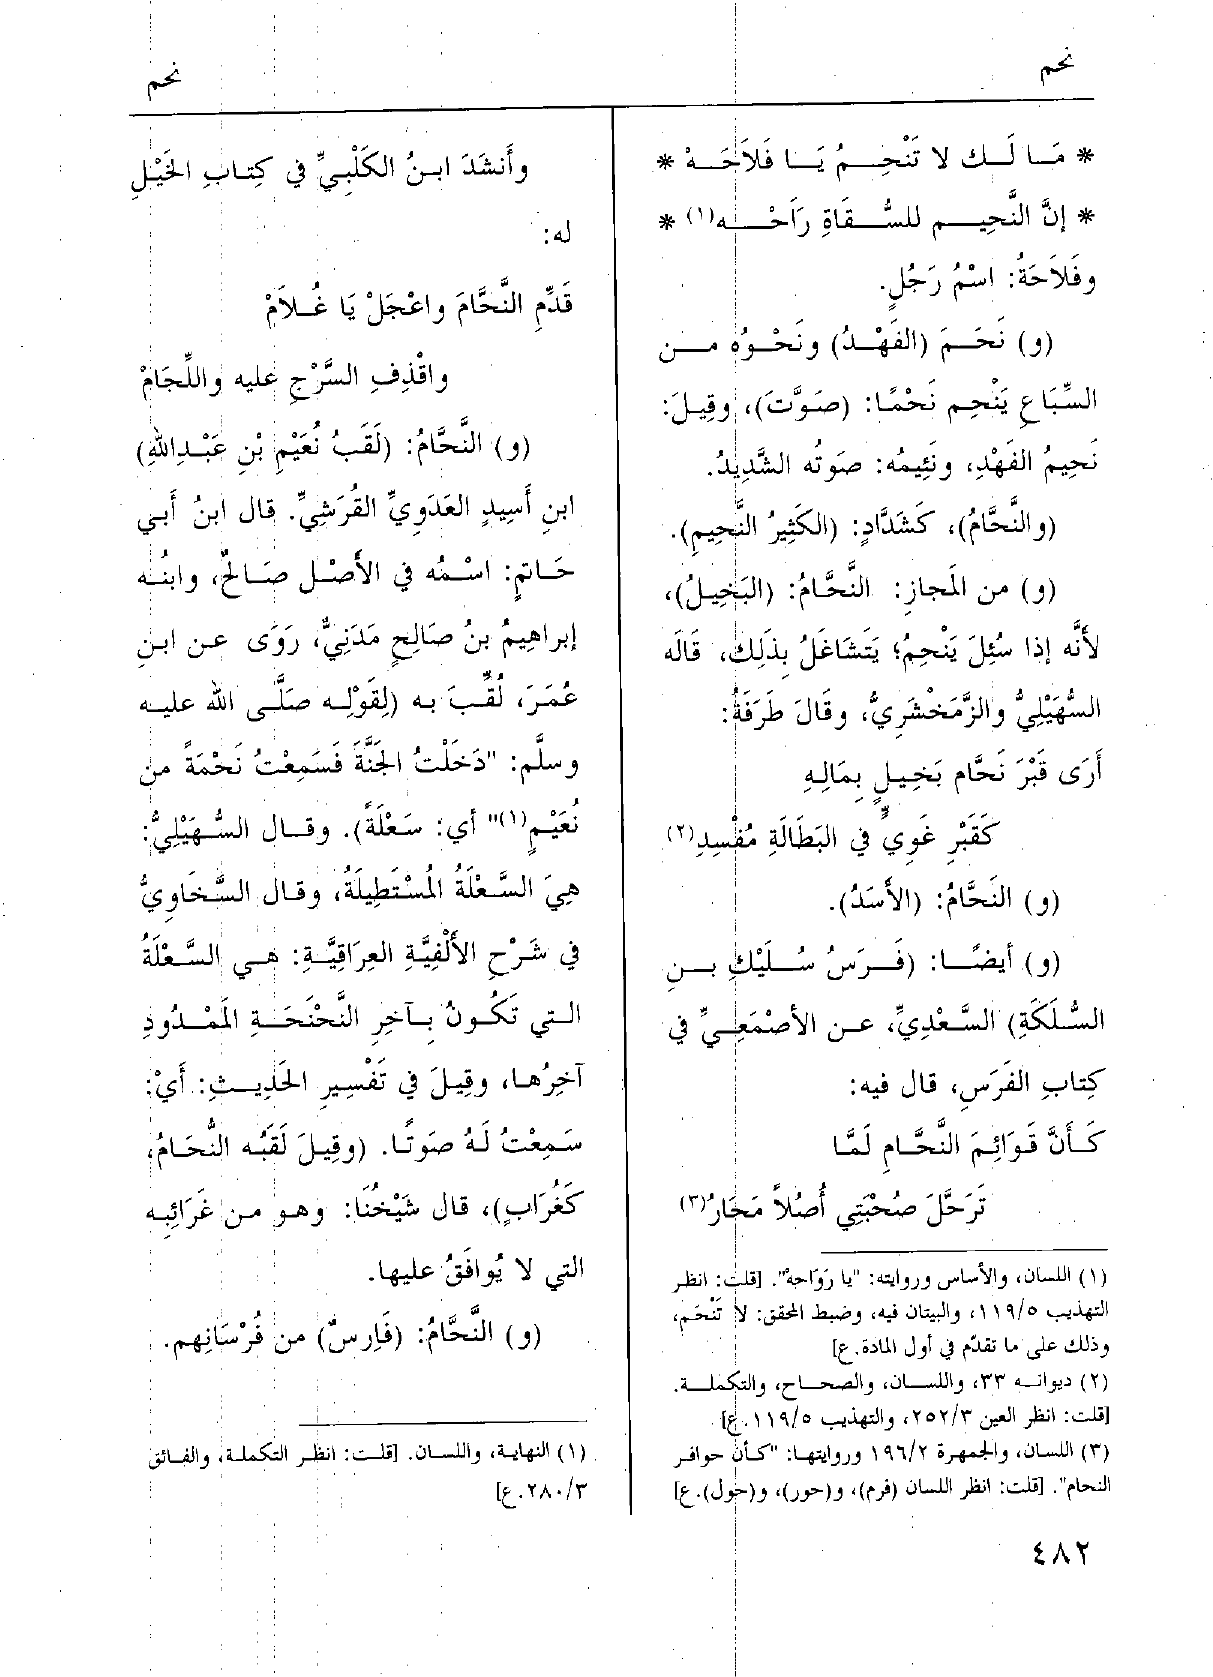 نحم
نحم
* مَا لَك لا تَنْحِمُ يَا فَلاَحَهْ *
* إنَّ النَّحِيم للسُّقَاةِ رَاحْه(١) *
وفَلاَحَةُ: اسْمُ رَجُلٍ.
(و) نَحَمَ (الفَهْدُ) ونَحْوُه من
السِّبَاعِ يَنْحِم نَحْمًا: (صَوَّتَ)، وقِيلَ:
نَحِيمُ الفَهْدِ، ونَئِيمُه: صَوتُه الشَّدِيدُ.
(والنَّحَّامُ)، كَشَدَّادٍ: (الكَثِيرُ النَّحِيمِ).
(و) من المَجازِ: النَّحَّامُ: (البَخِيلُ)،
لأَنَّه إذا سُئِلَ يَنْحِمُ؛ يَتَشَاغَلُ بِذَلِكَ، قَالَه
السُّهَيْلِيُّ والزَّمَخْشَرِيُّ، وقَالَ طَرَفَةُ:
أَرَى قَبْرَ نَحَّام بَخِيلٍ بِمَالِهِ
كَقَبْرِ غَوِيٍّ في البَطَالَةِ مُفْسِدِ(٢)
(و) النَحَّامُ: (الأَسَدُ).
(و) أيضًا: (فَرَسُ سُلَيْكِ بن
السُّلَكَةِ) السَّعْدِيِّ، عن الأصْمَعِيِّ في
كِتابِ الفَرَسِ، قال فيه:
كَأَنَّ قَوَائِمَ النَّحَّامِ لَمَّا
تَرَحَّلَ صُحْبَتِي أُصُلاً مَحَارُ(٣)
(١) اللسان، والأساس وروايته: "يا رَوَاحهْ". [قلت: انظر
التهذيب ١١٩/٥، والبيتان فيه، وضبط المحقق: لا تَنْحَم،
وذلك على ما تقدّم في أول المادة.ع]
(٢) ديوانه ٣٣، واللسان، والصحاح، والتكملة.
[قلت: انظر العين ٢٥٢/٣، والتهذيب ١١٩/٥.ع]
(٣) اللسان، والجمهرة ١٩٦/٢ وروايتها: "كأن حوافر
النحام". [قلت: انظر اللسان (فرم)، و(حور)، و(حول).ع]
وأَنشَدَ ابنُ الكَلْبِيِّ في كِتابِ الخَيْلِ
له:
قَدِّمِ النَّحَّامَ واعْجَلْ يَا غُلاَمْ
واقْذِفِ السَّرْجِ عليه واللِّجَامْ
(و) النَّحَّامُ: (لَقَبُ نُعَيْمِ بْنِ عَبْدِاللهِ)
ابنِ أَسِيدٍ العَدَوِيِّ القُرَشِيِّ. قال ابنُ أَبي
حَاتمٍ: اسْمُه في الأَصْل صَالحٌ، وابنُه
إبراهِيمُ بنُ صَالِحٍ مَدَنِيٌّ، رَوَى عن ابنِ
عُمَرَ، لُقِّبَ به (لِقَوْلِه صَلَّى الله عليه
وسلَّم: "دَخَلْتُ الجَنَّةَ فَسَمِعْتُ نَحْمَةً من
نُعَيْمٍ(١)" أي: سَعْلَةً). وقال السُّهَيْلِيُّ:
هِيَ السَّعْلَةُ المُسْتَطِيلَةُ، وقال السَّخَاوِيُّ
في شَرْحِ الأَلْفِيَّةِ العِرَاقِيَّةِ: هي السَّعْلَةُ
التي تَكُونُ بآخِرِ النَّحْنَحَةِ المَمْدُودِ
آخِرُها، وقِيلَ في تَفْسِيرِ الحَدِيثِ: أَيْ:
سَمِعْتُ لَهُ صَوتًا. (وقِيلَ لَقَبُه النُّحَامُ،
كَغُرَابٍ)، قال شَيْخُنَا: وهو من غَرَائِبِه
التي لا يُوافَقُ عليها.
(و) النَّحَّامُ: (فَارِسٌ) من فُرْسَانِهم.
(١) النهاية، واللسان. [قلت: انظر التكملة، والفائق
٢٨٠/٣.ع]
٤٨٢